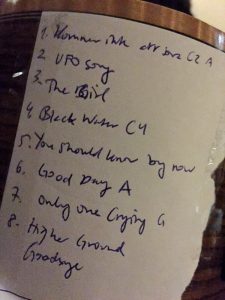 1. Kommer inte att dra C2 A
2 UFO song
3. The Girl
4. Black Water C4
5. You should know by now
6. Good Day A
7. Only one Crying G
8. Higher Ground
Goodbye